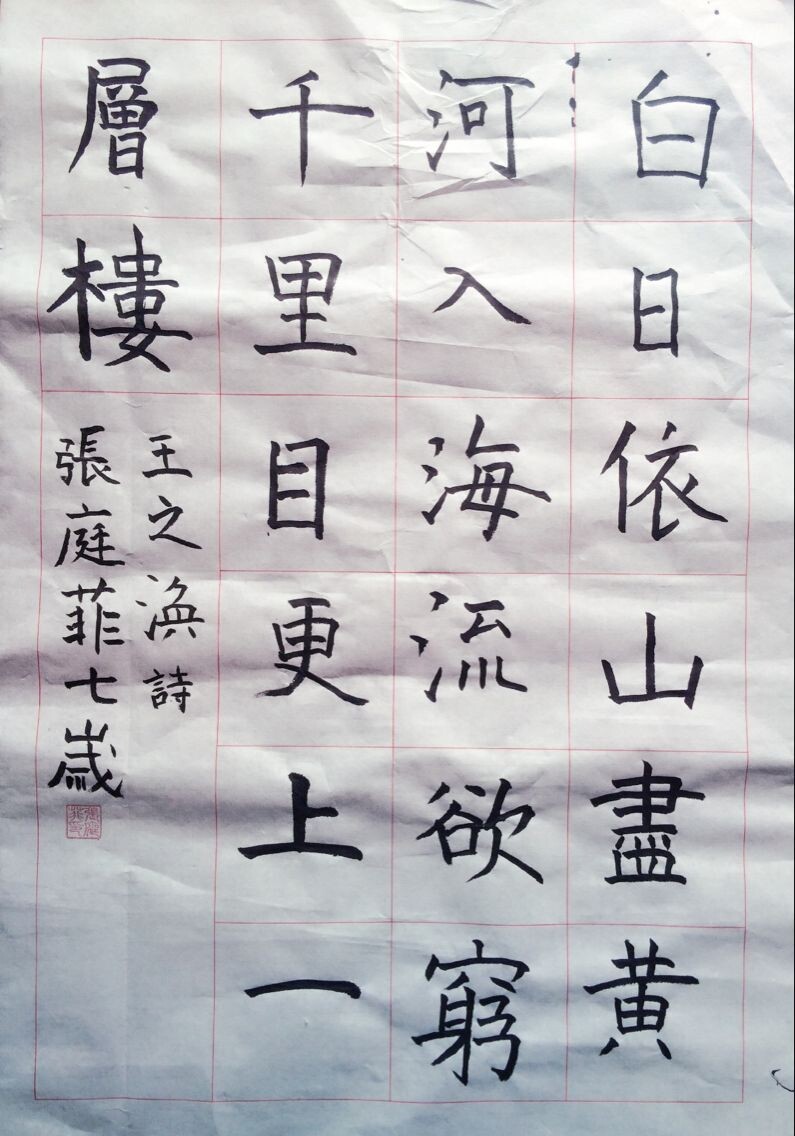 白日依山盡黄
河入海流欲窮
千里目更上一
層樓
王之渙詩
張庭菲七歲